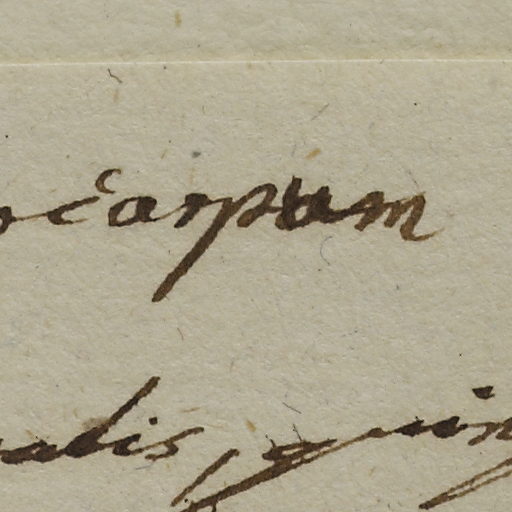 ocarpum
alis, quin